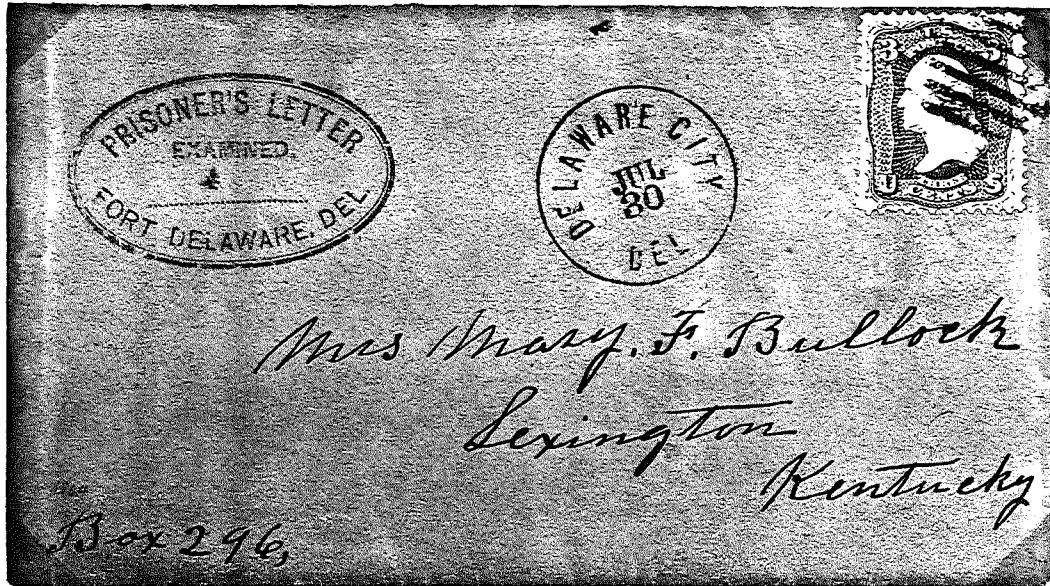 PRISONER'S LETTER
EXAMINED.
FORT DELAWARE, DEL.
DELAWARE CITY
JUL
30
DEL
3 3
U S
Mrs Mary. F. Bullock
Lexington
Kentucky
Box 296,